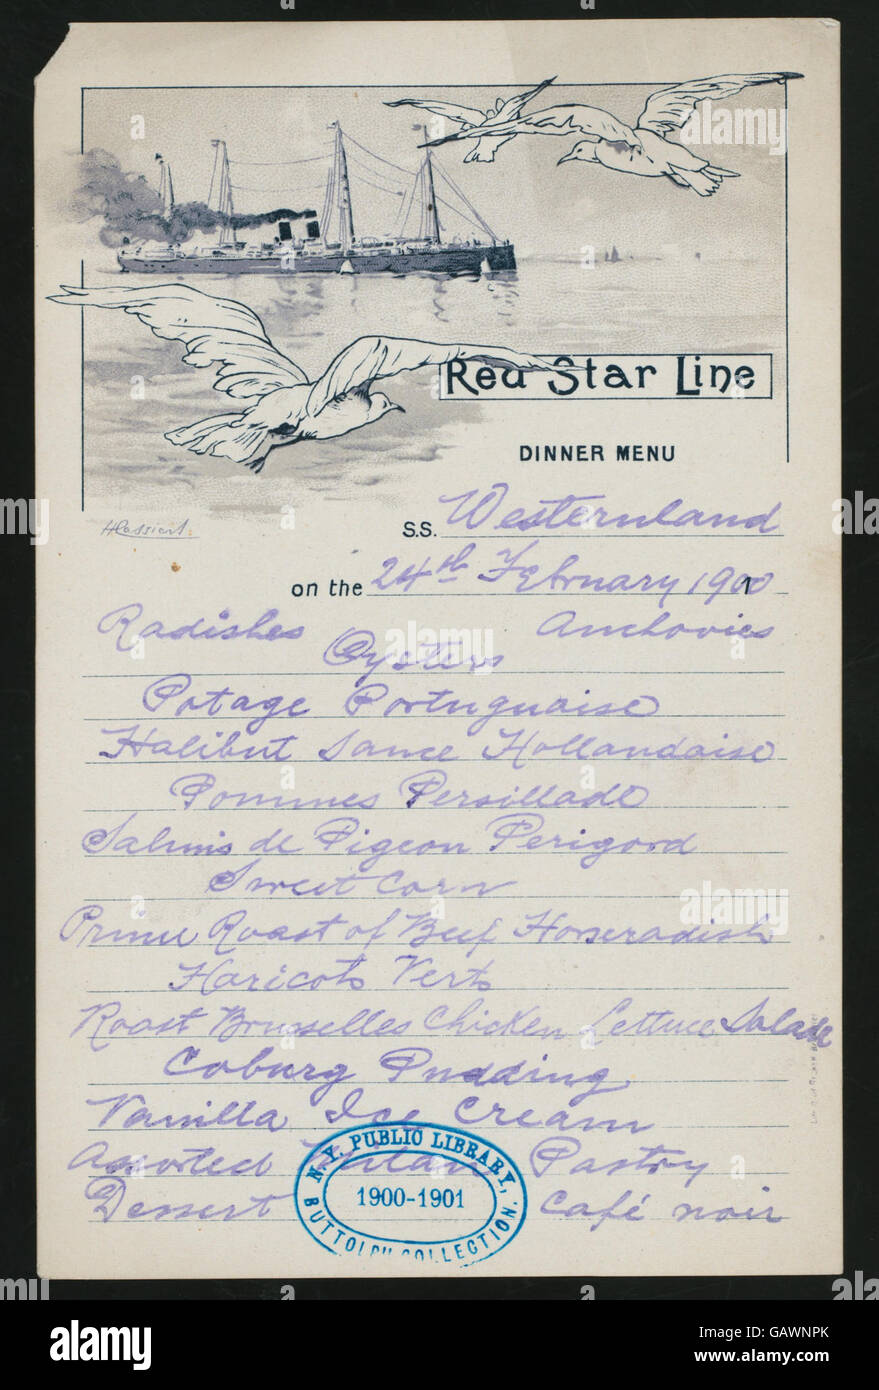 Red Star Line
DINNER MENU
H Cassiers
S.S. Westernland
on the 24th February 1900
Radishes Anchovies
Oysters
Potage Portuguaise
Halibut Sauce Hollandaise
Pommes Persillade
Salmis de Pigeon Perigord
Sweet Corn
Prime Roast of Beef Horseradish
Haricots Verts
Roast Brusselles Chicken Lettuce Salade
Coburg Pudding
Vanilla Ice Cream
Assorted Pastry
Dessert Café noir
N.Y. PUBLIC LIBRARY,
1900-1901
BUTTOLPH COLLECTION.
alamy
Image ID: GAWNPK
www.alamy.com